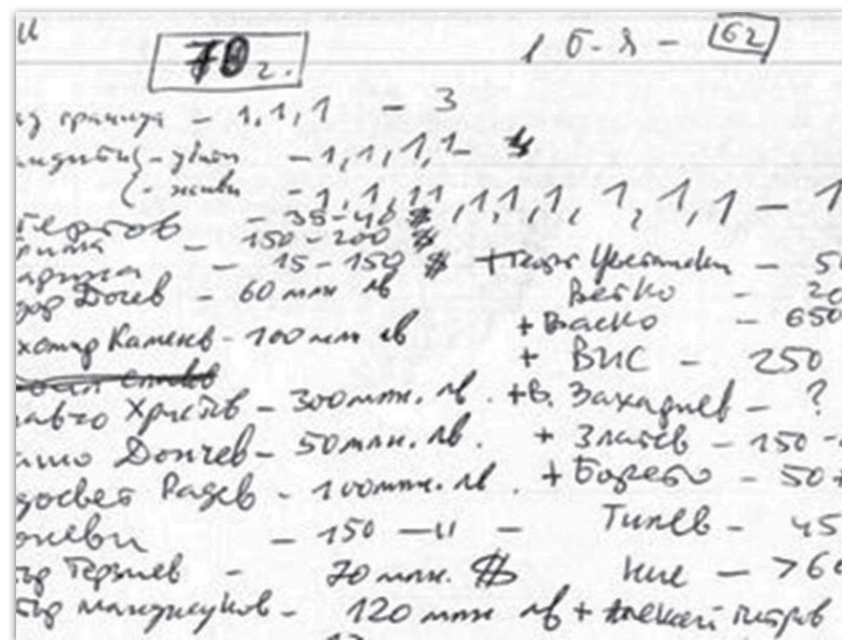 и
70 г. 1 б-я - 62
из граница - 1,1,1 - 3
- убити - 1,1,1,1 - 4
- живи - 1,1,11,1,1,1,1,1,1,1 - 1
- 35-40 $
- 150-200 $
- 15-150 $ + Цветански - 50
Дочев - 60 млн лв Ветко - 20
Каменов - 100 млн лв + Васко - 650
+ ВИС - 250
Христов - 300 млн. лв. + В. Захариев - ?
Дончев - 50 млн. лв. + Златев - 150 -
Радев - 100 млн. лв. + Борето - 50 +
оневи - 150 -"- Тилев - 45
Терзиев - 70 млн. $ Ние - >60
Манджуков - 120 млн лв + Алексей Петров